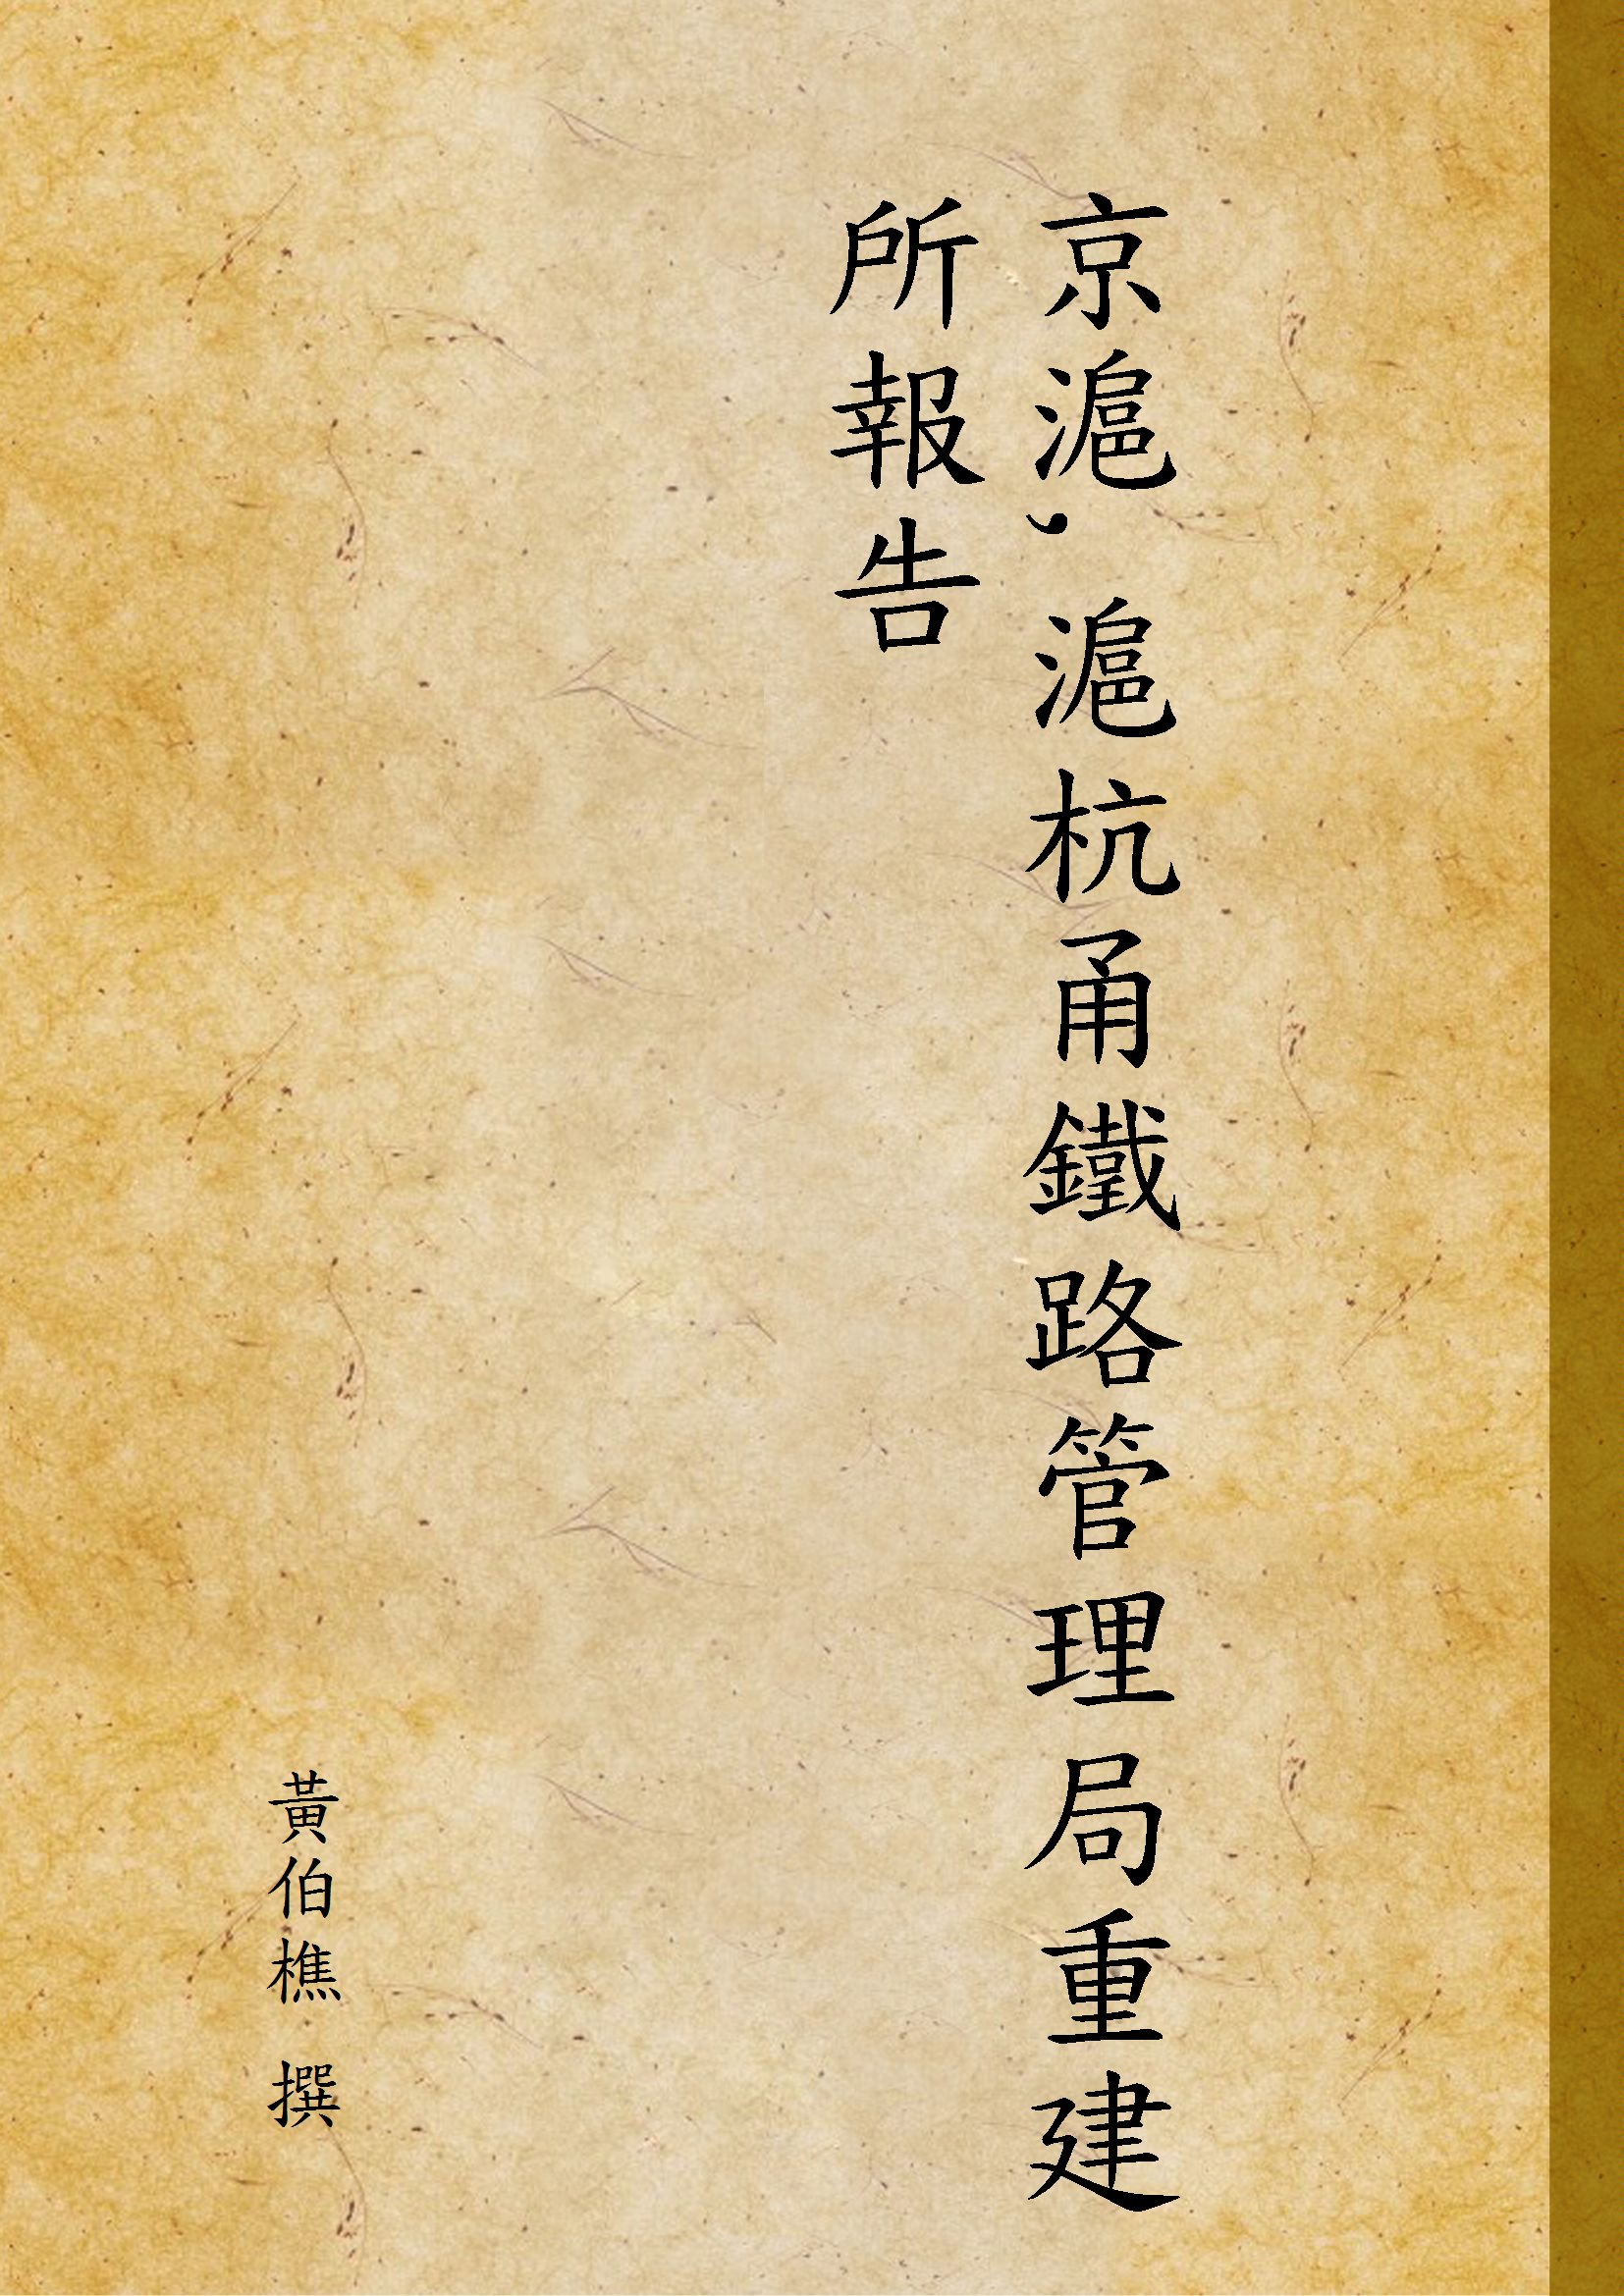 京滬,滬杭甬鐵路管理局重建
所報告
黃伯樵 撰